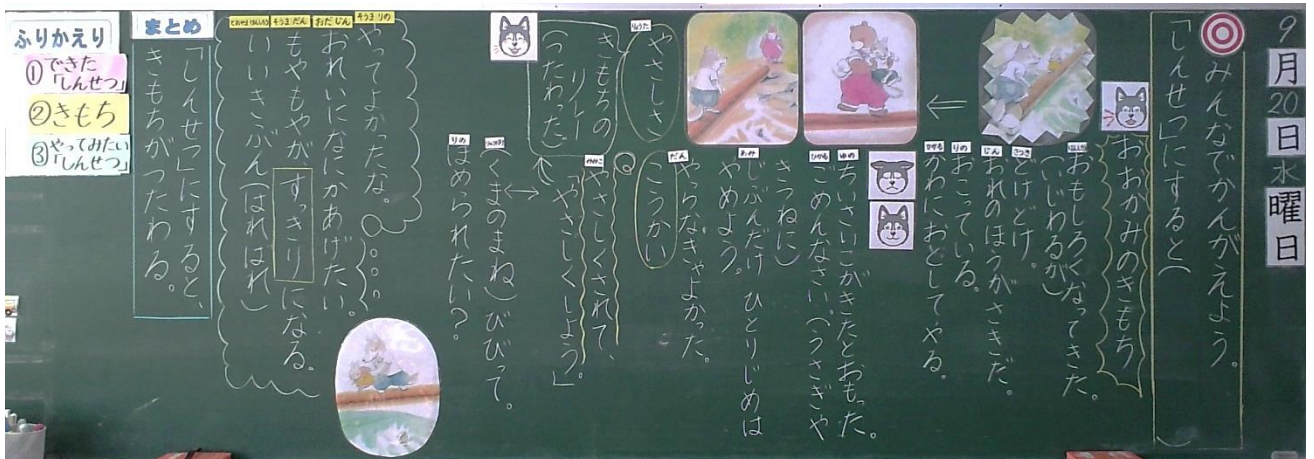 9月20日水曜日
みんなでかんがえよう。
「しんせつ」にすると（　　）
おおかみのきもち
おもしろくなってきた。
（いじわるが）
さつき
どけどけ。
じん
おれのほうがさきだ。
りの
おこっている。
ひかる
かわにおとしてやる。
ゆの
ちいさいこがきたとおもった。
ひかる
ごめんなさい。（うさぎや
きつねに）
あみ
じぶんだけ　ひとりじめは
やめよう。
だん
やらなきゃよかった。
こうかい
りゅうた
やさしさ
きもちの
リレー
（つたわった）
やさしくされて、
「やさしくしよう。」
（くまのまね）びびって。
りの
ほめられたい？
そうま りの
やってよかったな。
おだ じん
おれいになにかあげたい。
そうま だん
もやもやが すっきり になる。
いいきぶん（はればれ）
まとめ
「しんせつ」にすると、
きもちがつたわる。
ふりかえり
①できた「しんせつ」
②きもち
③やってみたい「しんせつ」